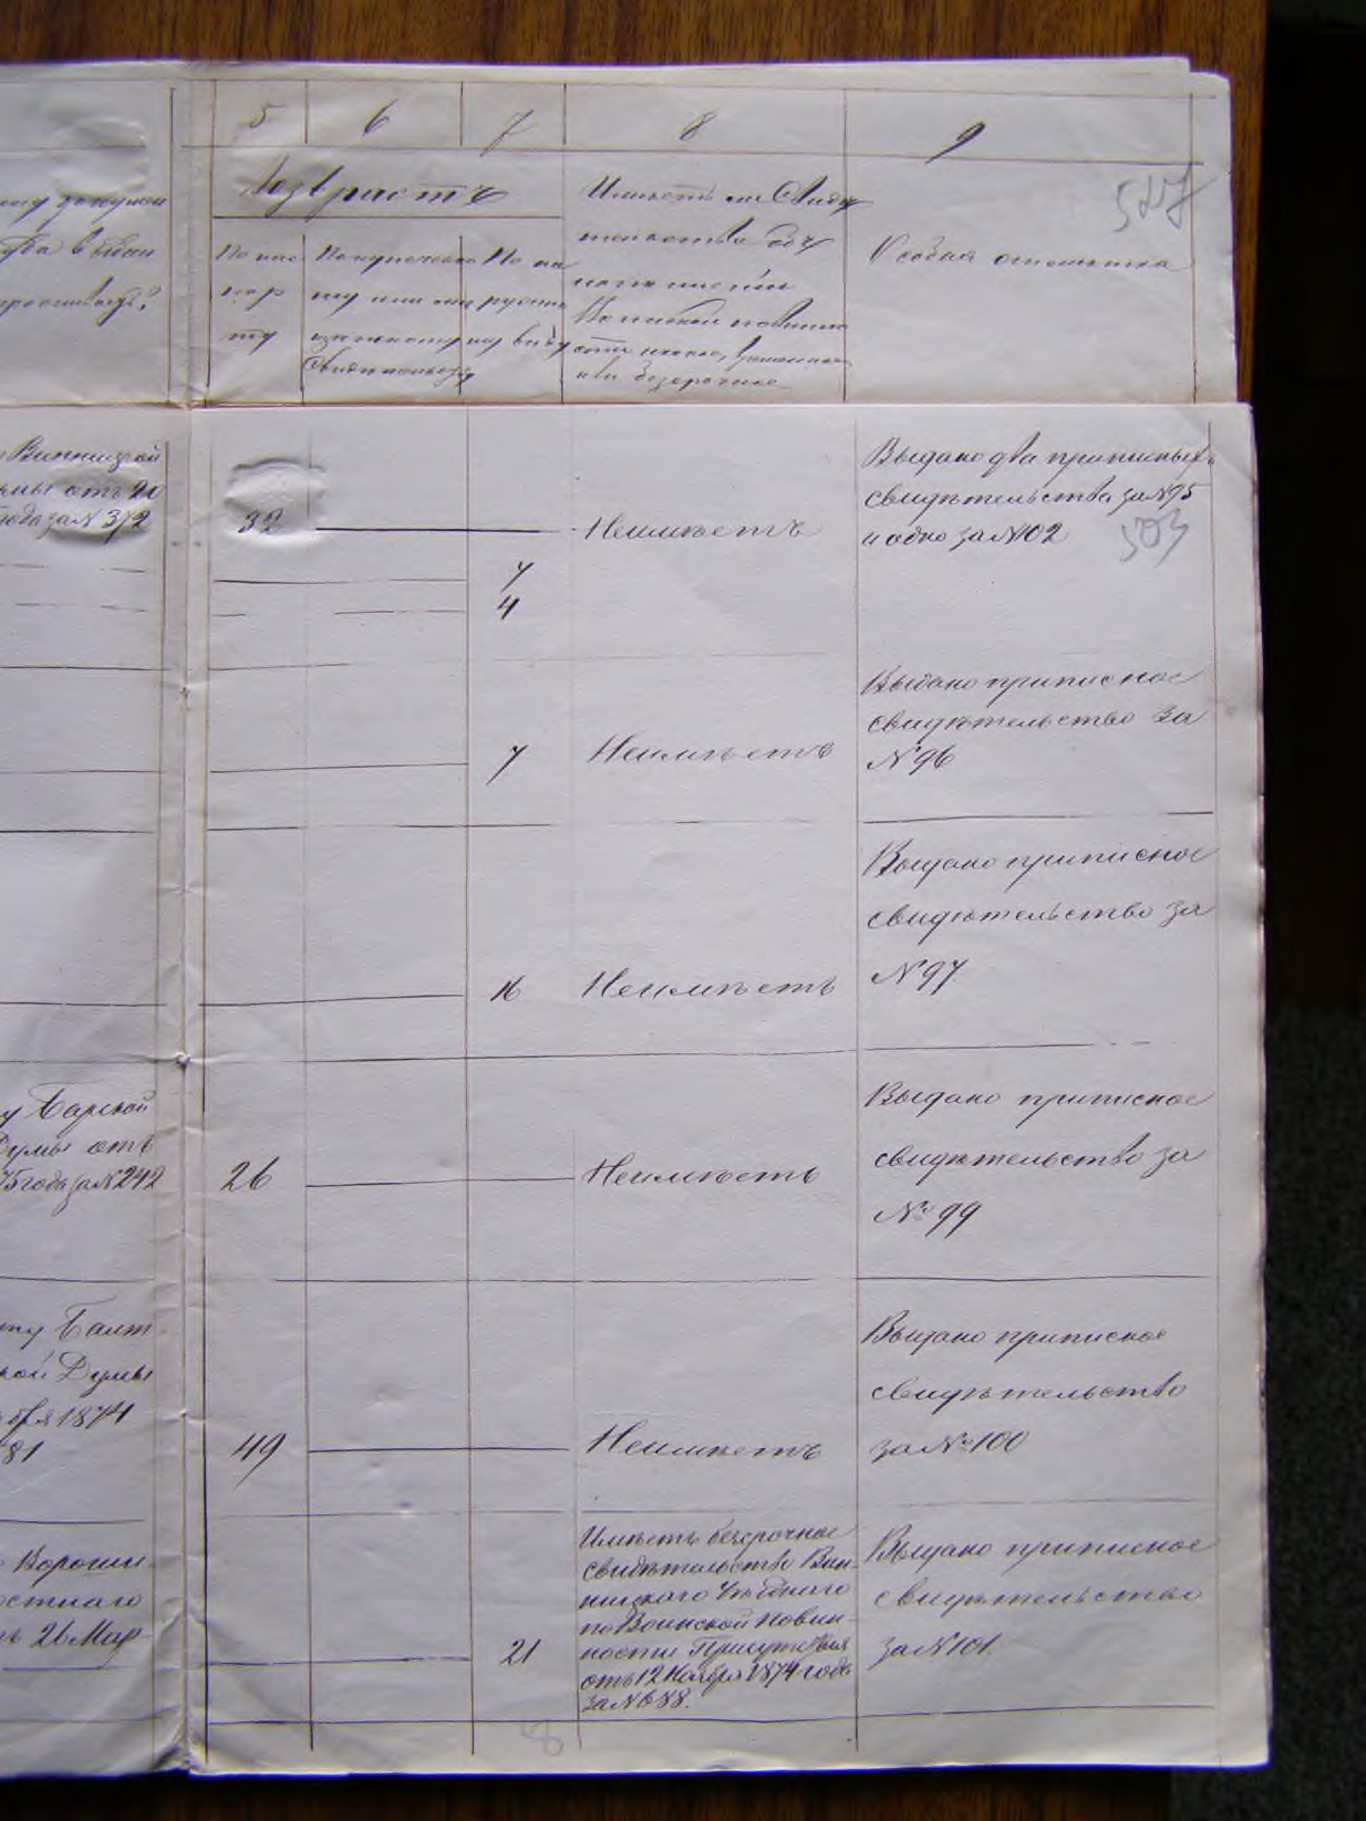 5 6 7 8 9
Возврастъ
По пас
пор
ту
По купеческо
му или мѣ
щанскому
Свидетельству
По на
ружно
му виду
Имѣетъ ли Свидѣ
тельство объ
исполненіи
Воинской повинно
сти
или безсрочное
Особая отметка
527
просиваетъ?
Винницкой
умы отъ 20
года за N 372
32
Неимѣетъ
Выдано два приписныхъ
свидѣтельства за N 95
и одно за N 102
503
7
4
7
Неимѣетъ
Выдано приписное
свидѣтельство за
N 96
16
Неимѣетъ
Выдано приписное
свидѣтельство за
N 97.
у Барской
Думы отъ
75 года за N 242
26
Неимѣетъ
Выдано приписное
свидѣтельство за
№ 99
ту Балт
кой Думы
бря 1874
81
49
Неимѣетъ
Выдано приписное
свидѣтельство
за № 100
Ворони
остнаго
26 Мар
21
Имѣетъ безсрочное
свидѣтельство Вин-
ницкаго Уѣзднаго
по Воинской повин-
ности Присутствия
отъ 12 Ноября 1874 года
за N 688.
Выдано приписное
свидѣтельство
за N 101.